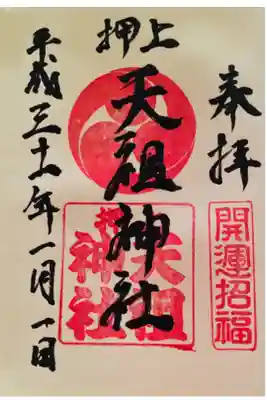 奉拝
開運招福
押上
天祖神社
押上
天祖
神社
平成三十一年一月一日